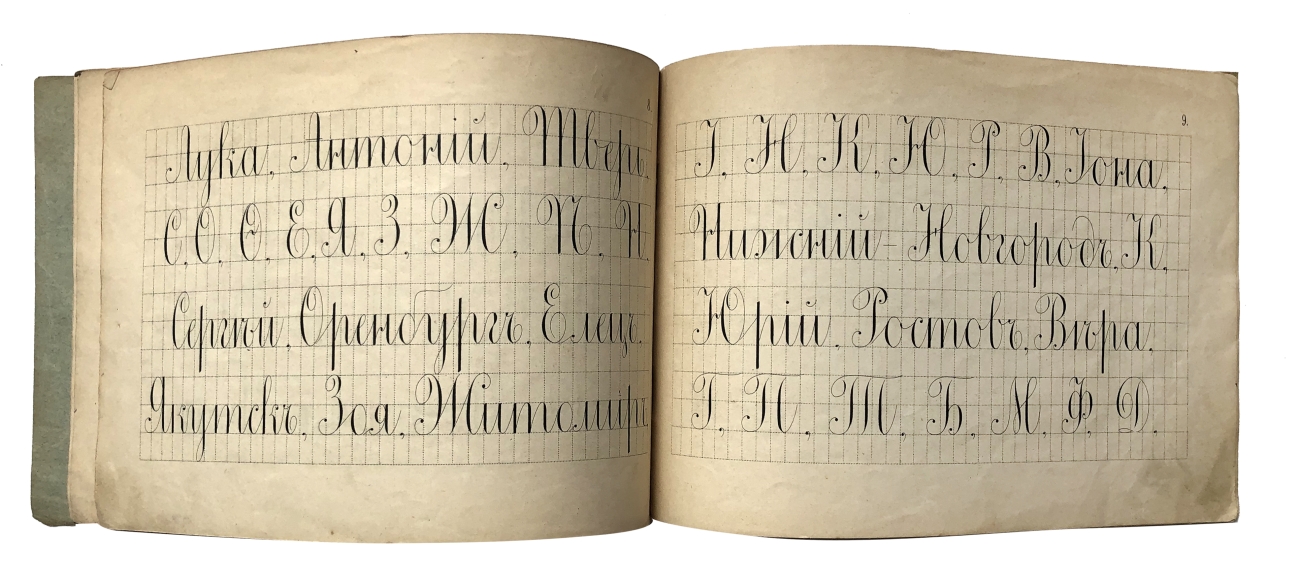 8.
Лука, Антоній, Тверь.
С, О, Ѳ, Е, Я, З, Ж, П, Н.
Сергѣй, Оренбургъ, Елецъ.
Якутскъ, Зоя, Житомиръ.
9.
І, Н, К, Ю, Р, В, Іона,
Нижній-Новгородъ, К,
Юрій, Ростовъ, Вѣра.
Г, П, Т, Б, М, Ф, Д.